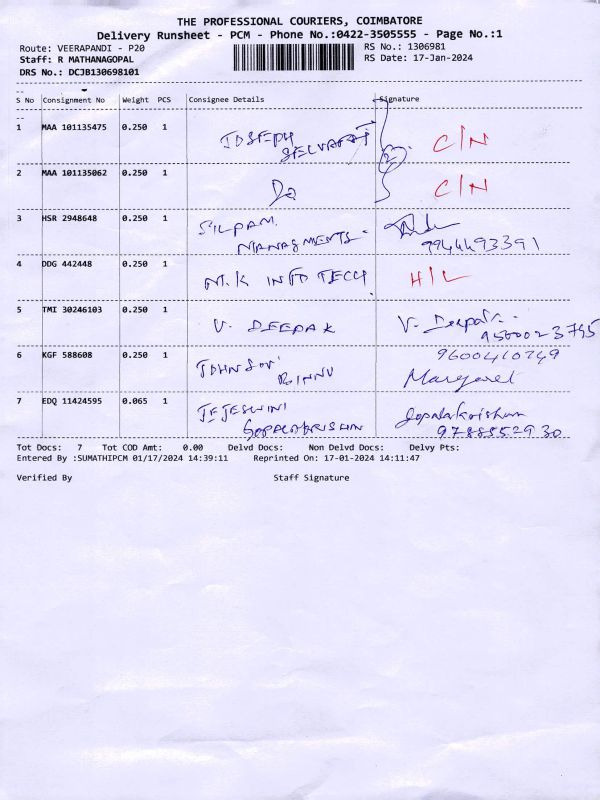 THE PROFESSIONAL COURIERS, COIMBATORE
Delivery Runsheet - PCM - Phone No.:0422-3505555 - Page No.:1
Route: VEERAPANDI - P20
RS No.: 1306981
Staff: R MATHANAGOPAL
RS Date: 17-Jan-2024
DRS No.: DCJB130698101
S No Consignment No Weight PCS Consignee Details Signature
1 MAA 101135475 0.250 1 JOSEPH SELVARAJ C/N
2 MAA 101135062 0.250 1 Do C/N
3 HSR 2948648 0.250 1 SILPAM
MANAGMENTS 9944493391
4 DDG 442448 0.250 1 M.K INFO TECH H/L
5 TMI 30246103 0.250 1 V. DEEPAK V. Deepak
9500023795
6 KGF 588608 0.250 1 JOHNSON BINNU 9600410749
Margaret
7 EDQ 11424595 0.065 1 TEJESWINI Gopalakrishnan
GOPALAKRISHN 9788552930
Tot Docs: 7 Tot COD Amt: 0.00 Delvd Docs: Non Delvd Docs: Delvy Pts:
Entered By :SUMATHIPCM 01/17/2024 14:39:11 Reprinted On: 17-01-2024 14:11:47
Verified By Staff Signature